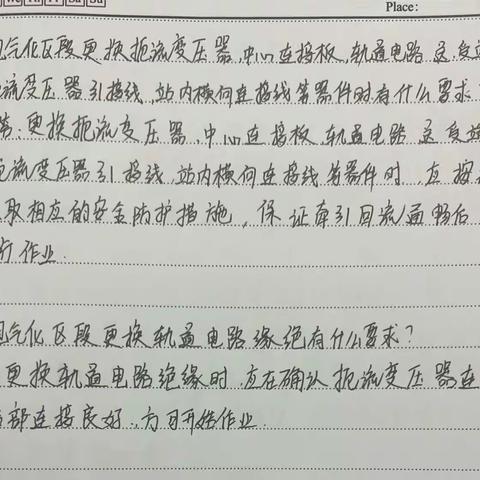 We Th Fr Sa Su
Place:
气化区段更换扼流变压器,中心连接板,轨道电路送.受
流变压器引接线、站内横向连接线等器件时有什么要求?
答:更换扼流变压器、中心连接板、轨道电路送受
流变压器引接线、站内横向连接线等器件时,应按
取相应的安全防护措施,保证牵引回流通畅后
行作业.
气化区段更换轨道电路缘绝有什么要求?
更换轨道电路绝缘时,应在确认扼流变压器连
部连接良好.,方可开始作业.